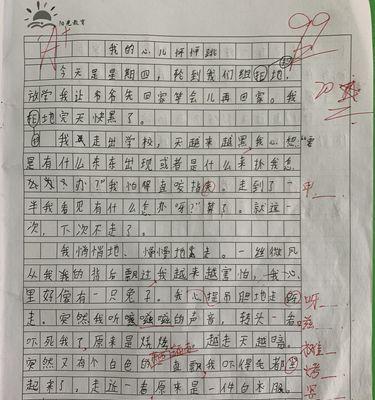 阳光教育
A+
99
我的心儿怦怦跳
今天是星期四，轮到我们组拖地，
放学我让爷爷先回家等会儿再回家。我
拖地完天快黑了。
我走出学校，天越来越黑我心想"要
是有什么东东出现或者是什么来扑我怎
么办？"我怕得直咬指。走到了一
半我看见有什么怎办呀？算了。就这一
次，下次不走了。
我悄悄地、慢慢地走。一丝微风
从我的背后飘过我越来越害怕，我心
里好像有一只兔子。我心提吊胆地走
走。突然我听嗞嗞的声音，转头一看
吓死我了原来是烧烤。越走天越暗。
突然又有个白色的飘我吓得毛都
起来了，走近一看原来是一件白衣服。